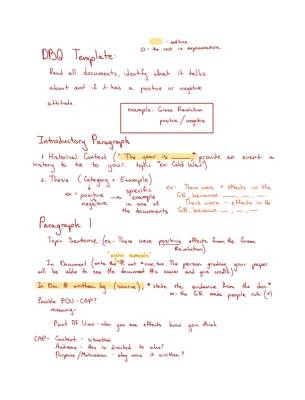 - outline
□ - the rest is explanation
DBQ Template:
Read all documents, identify what it talks
about and if it has a positive or negative
attitude.
example: Green Revolution
positive / negative
Introductory Paragraph
1. Historical Context ("The year is ___," provide an event in
history to tie to your topic *ex Cold War)
2. Thesis (Category + Example)
ex - positive
negative
specific
example
in one of
the documents
ex- There were + effects in the
G.R. because __, __, __
There were - effects in the
G.R. because __, __, __
Paragraph 1
Topic Sentence (ex- There were positive effects from the Green
Revolution)
"explain example"
In Document (write the # not *one, two. The person grading your paper
will be able to see the document # easier and give credit)
In Doc. # written by (source), *state the evidence from the doc*
ex: the G.R. made people rich (+)
Possible POV - CAP?
meaning:
Point Of View - who you are effects how you think
CAP- Context - situation
Audience - this is directed to who?
Purpose/Motivation - why was it written?